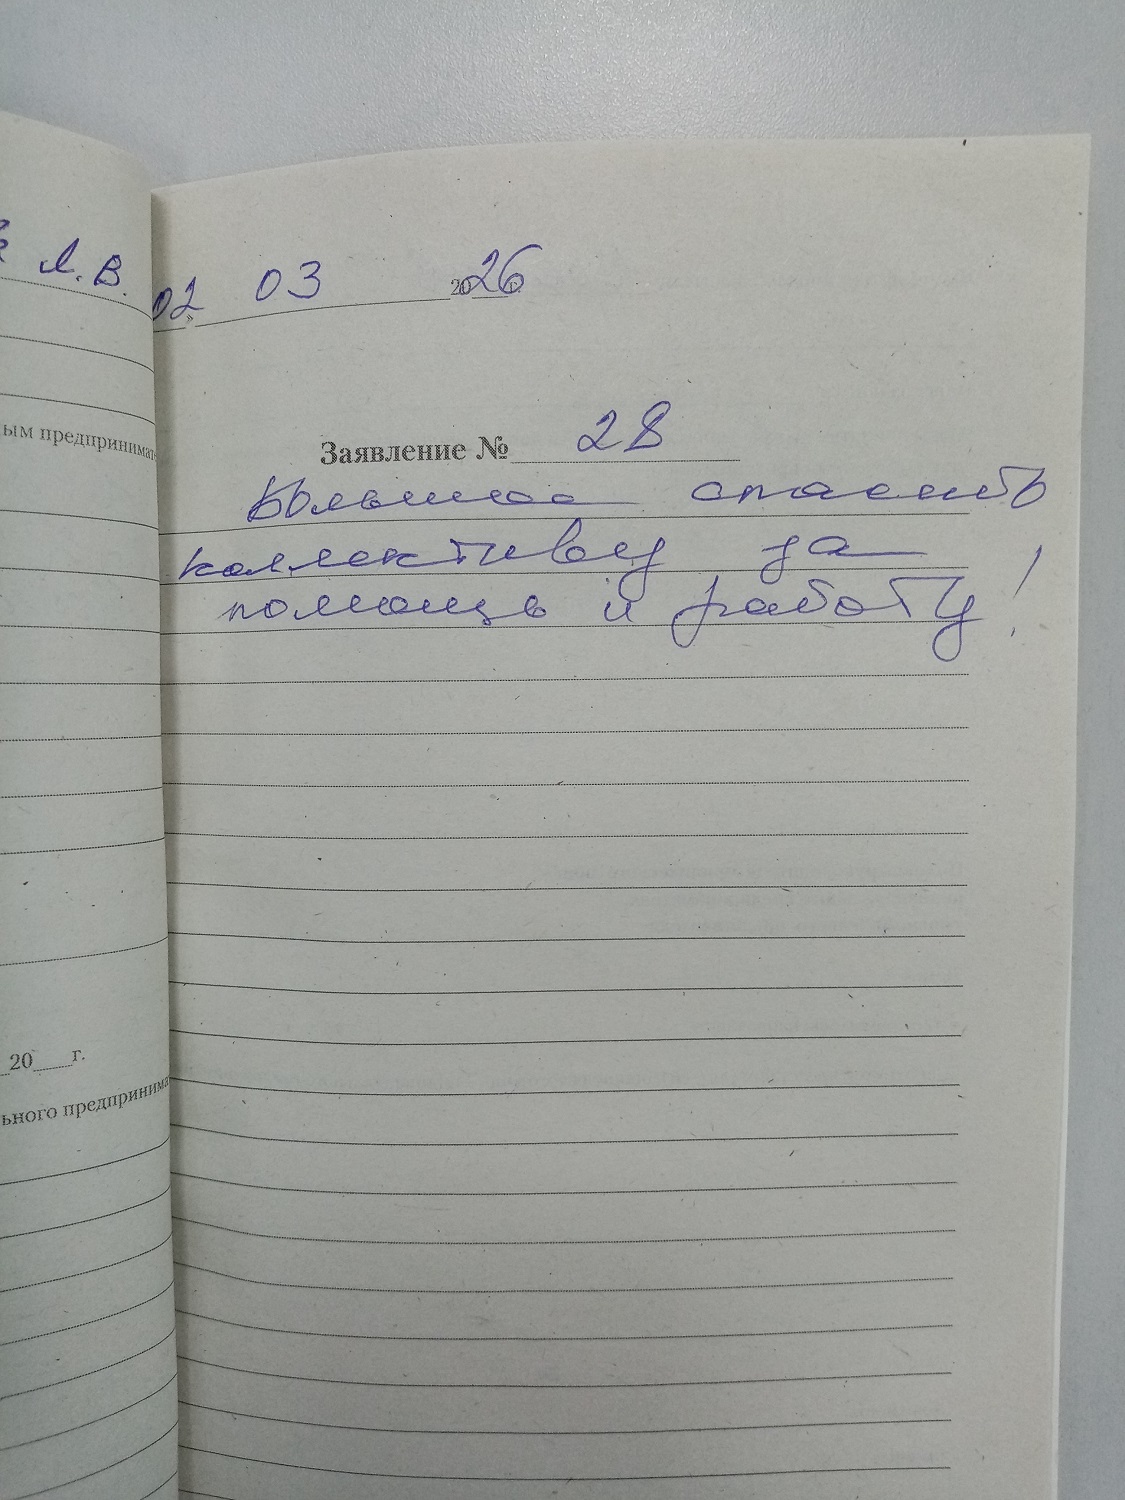 Л. В.
ым предпринимат
20 г.
ьного предпринима
02 » 03 2026 г.
Заявление № 28
Большое спасибо
коллективу за
помощь и работу!